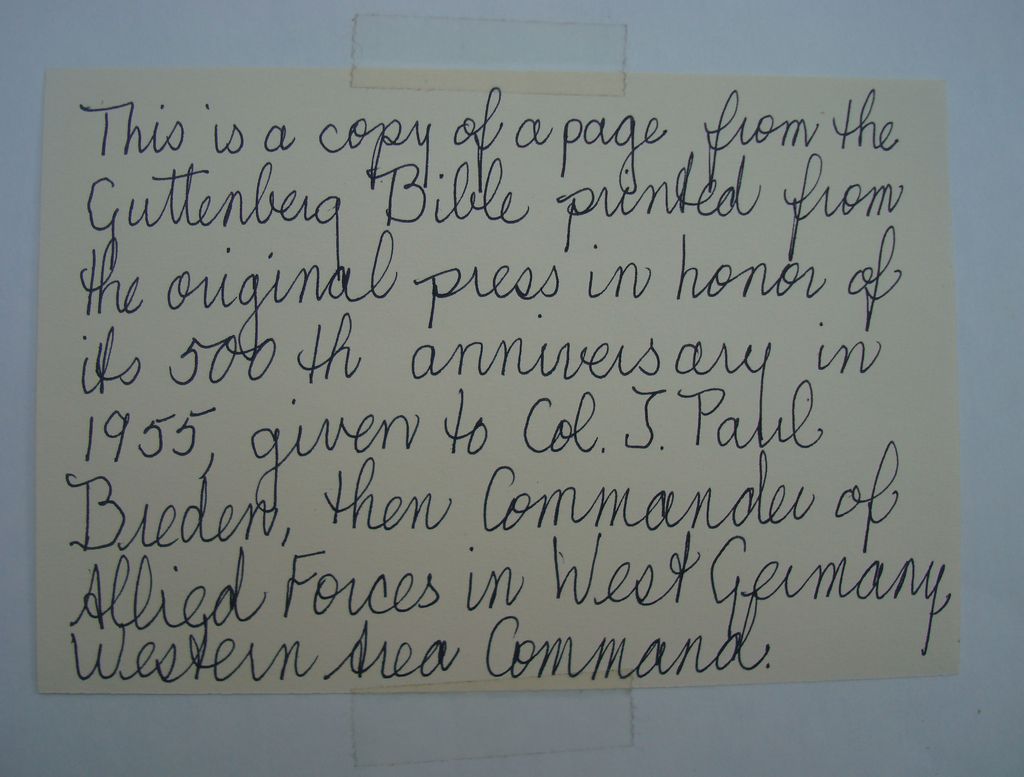 This is a copy of a page from the
Guttenberg Bible printed from
the original press in honor of
its 500 th anniversary in
1955, given to Col. J. Paul
Breden, then Commander of
Allied Forces in West Germany,
Western Area Command.